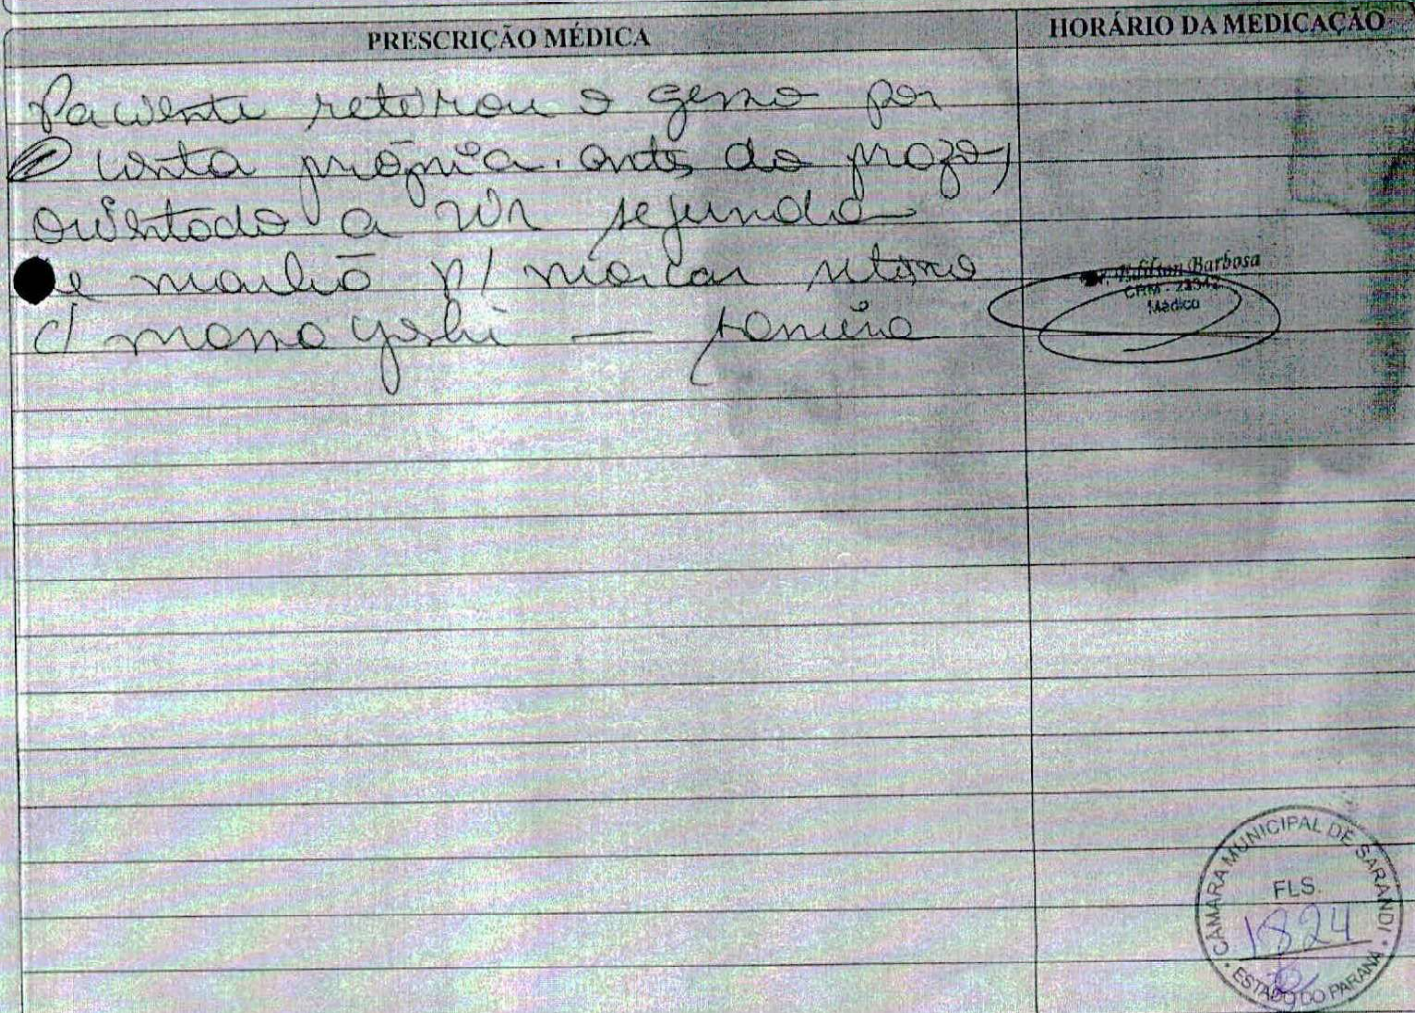 PRESCRIÇÃO MÉDICA
HORÁRIO DA MEDICAÇÃO
Paciente reterou o gesso por
conta própria. antes do prazo,
orientado a vir segunda
de manhã p/ marcar retorno
c/ mamo yoshi —
Edilson Barbosa
CRM -
Médico
CÂMARA MUNICIPAL DE SARANDI
FLS.
1824
ESTADO DO PARANÁ